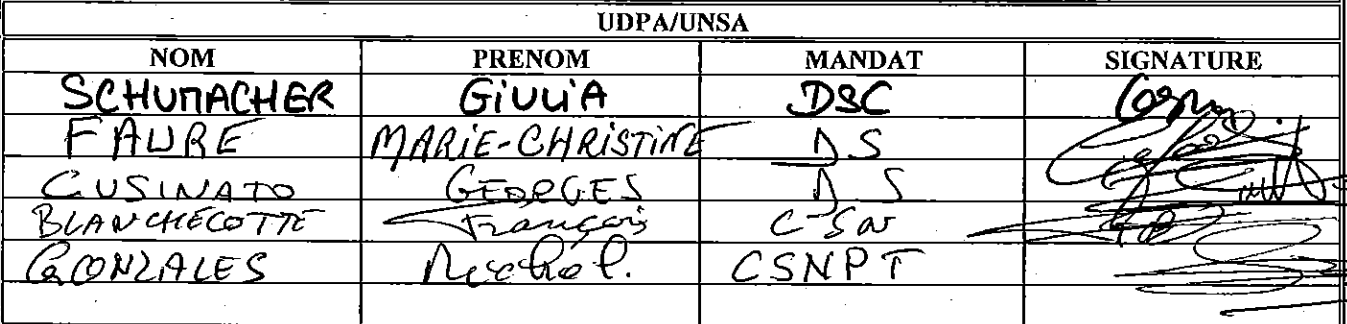 UDPA/UNSA
NOM PRENOM MANDAT SIGNATURE
SCHUMACHER GiULiA DSC
FAURE MARiE-CHRiSTiNE DS
CUSINATO GEORGES DS
BLANCHECOTTE François CSN
GONZALES Michel. CSNPT